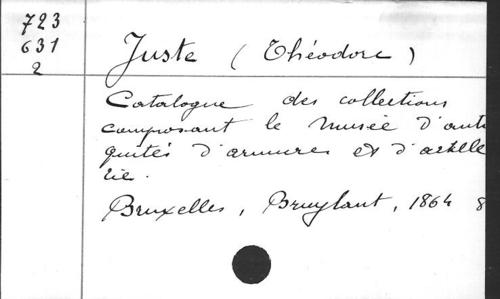 723
631
2
Juste (Théodore)
Catalogue des collections
composant le Musée d'anti
quités d'armures et d'artille
rie.
Bruxelles, Bruylant, 1864 8